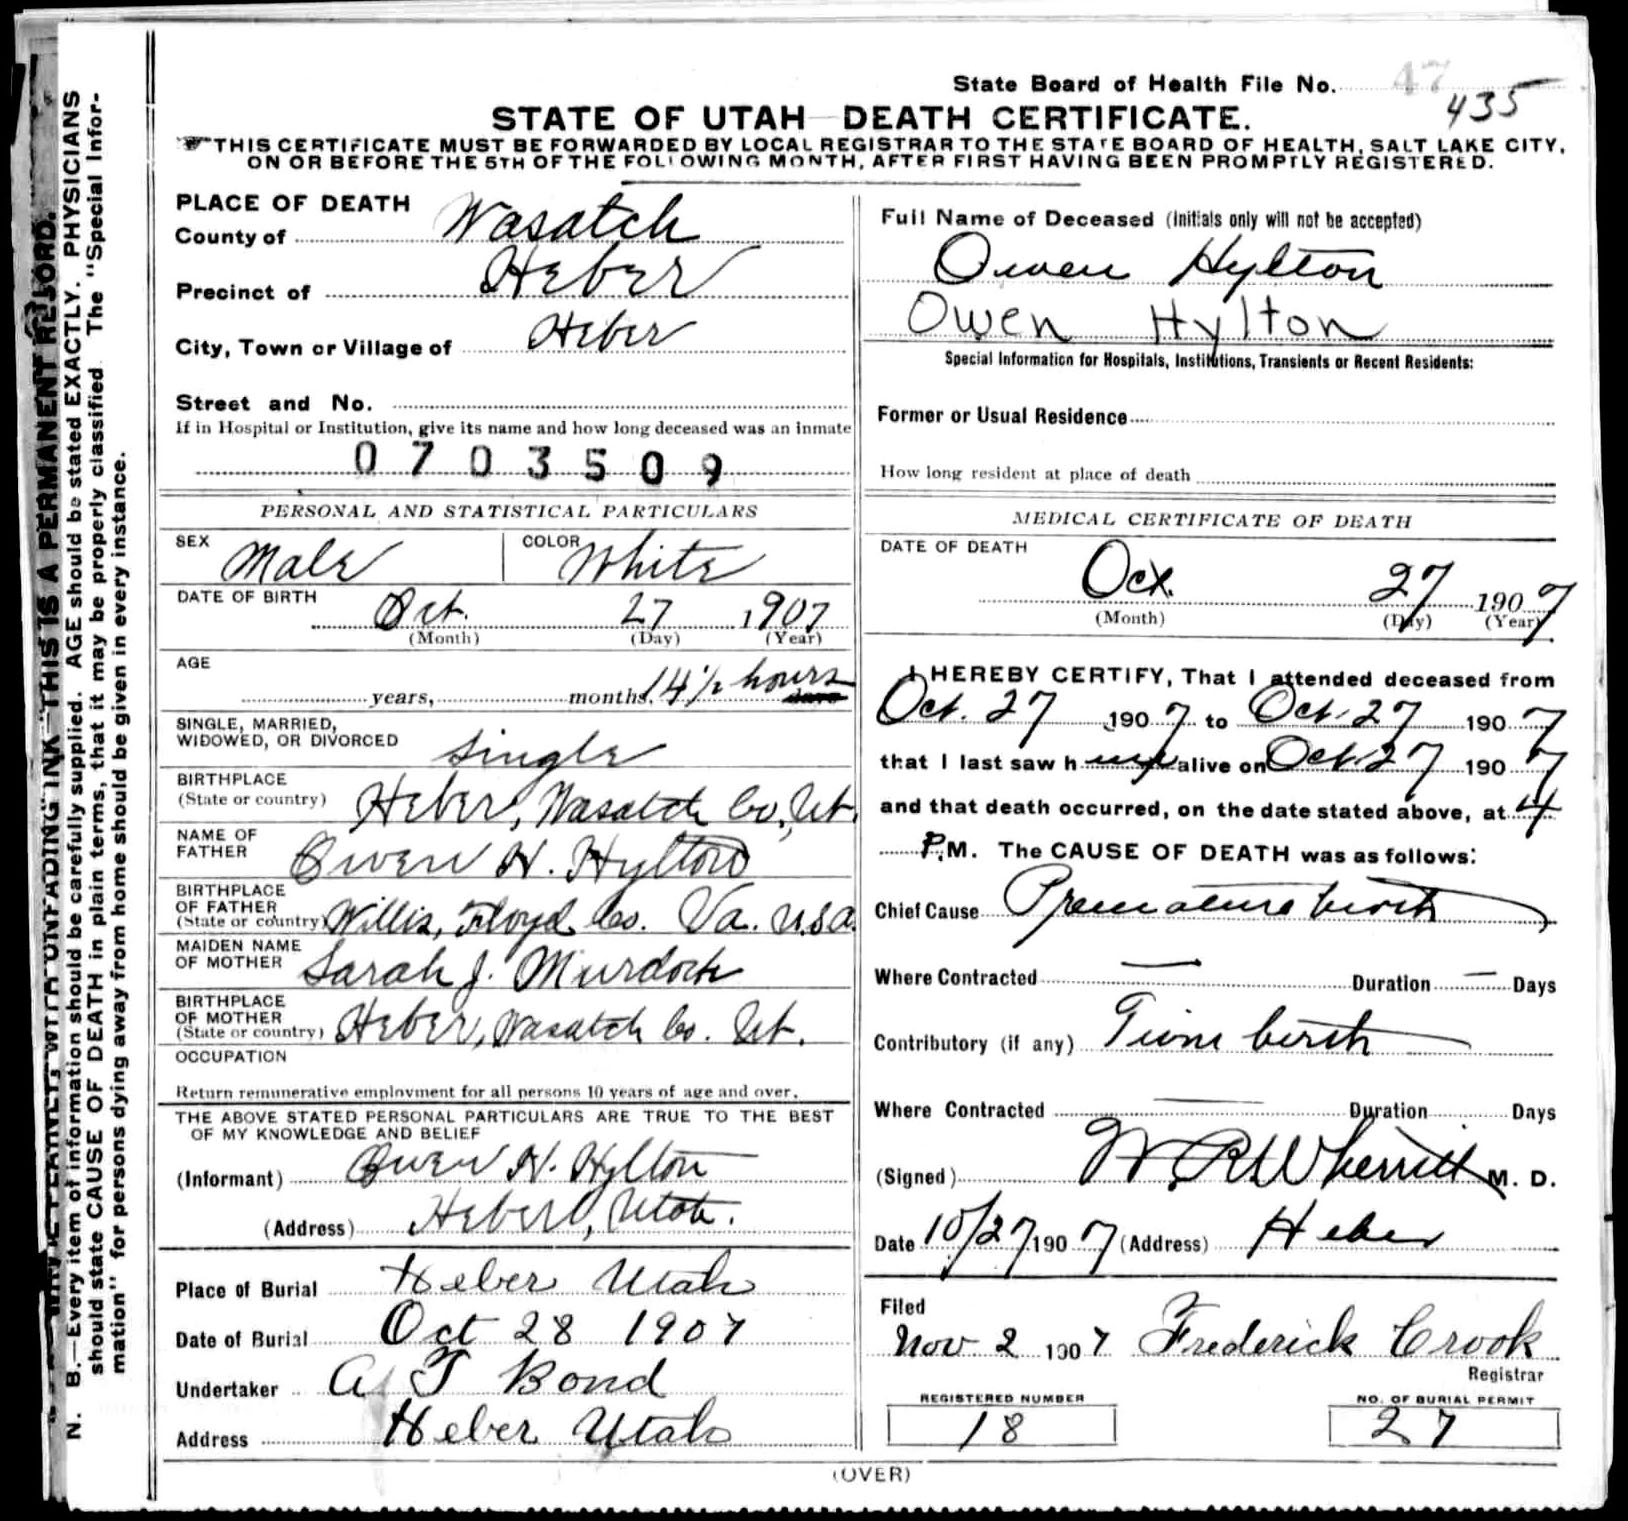 State Board of Health File No. 47
435
STATE OF UTAH DEATH CERTIFICATE.
THIS CERTIFICATE MUST BE FORWARDED BY LOCAL REGISTRAR TO THE STATE BOARD OF HEALTH, SALT LAKE CITY,
ON OR BEFORE THE 5TH OF THE FOLLOWING MONTH, AFTER FIRST HAVING BEEN PROMPTLY REGISTERED.
PLACE OF DEATH
County of Wasatch
Precinct of Heber
City, Town or Village of Heber
Street and No.
If in Hospital or Institution, give its name and how long deceased was an inmate
0703509
PERSONAL AND STATISTICAL PARTICULARS
SEX Male COLOR White
DATE OF BIRTH
Oct. 27 1907
(Month) (Day) (Year)
AGE
years, months, 14½ hours days
SINGLE, MARRIED,
WIDOWED, OR DIVORCED Single
BIRTHPLACE
(State or country) Heber, Wasatch Co., Ut.
NAME OF
FATHER Owen N. Hylton
BIRTHPLACE
OF FATHER
(State or country) Willis, Floyd Co. Va. U.S.A.
MAIDEN NAME
OF MOTHER Sarah J. Murdock
BIRTHPLACE
OF MOTHER
(State or country) Heber, Wasatch Co. Ut.
OCCUPATION
Return remunerative employment for all persons 10 years of age and over.
THE ABOVE STATED PERSONAL PARTICULARS ARE TRUE TO THE BEST
OF MY KNOWLEDGE AND BELIEF
(Informant) Owen N. Hylton
(Address) Heber, Utah.
Place of Burial Heber Utah
Date of Burial Oct 28 1907
Undertaker A T Bond
Address Heber Utah
Full Name of Deceased (Initials only will not be accepted)
Owen Hylton
Owen Hylton
Special Information for Hospitals, Institutions, Transients or Recent Residents:
Former or Usual Residence
How long resident at place of death
MEDICAL CERTIFICATE OF DEATH
DATE OF DEATH
Oct. 27 1907
(Month) (Day) (Year)
I HEREBY CERTIFY, That I attended deceased from
Oct. 27 1907 to Oct. 27 1907
that I last saw h im alive on Oct. 27 1907
and that death occurred, on the date stated above, at 4
P.M. The CAUSE OF DEATH was as follows:
Chief Cause Premature birth
Where Contracted — Duration — Days
Contributory (if any) Twin birth
Where Contracted — Duration Days
(Signed) W R Wherritt M. D.
Date 10/27 1907 (Address) Heber
Filed
Nov 2 1907 Frederick Crook
Registrar
REGISTERED NUMBER
18
NO. OF BURIAL PERMIT
27
(OVER)
WITH UNFADING INK—THIS IS A PERMANENT RECORD.
N. B.—Every item of information should be carefully supplied. AGE should be stated EXACTLY. PHYSICIANS
should state CAUSE OF DEATH in plain terms, that it may be properly classified. The "Special Infor-
mation" for persons dying away from home should be given in every instance.